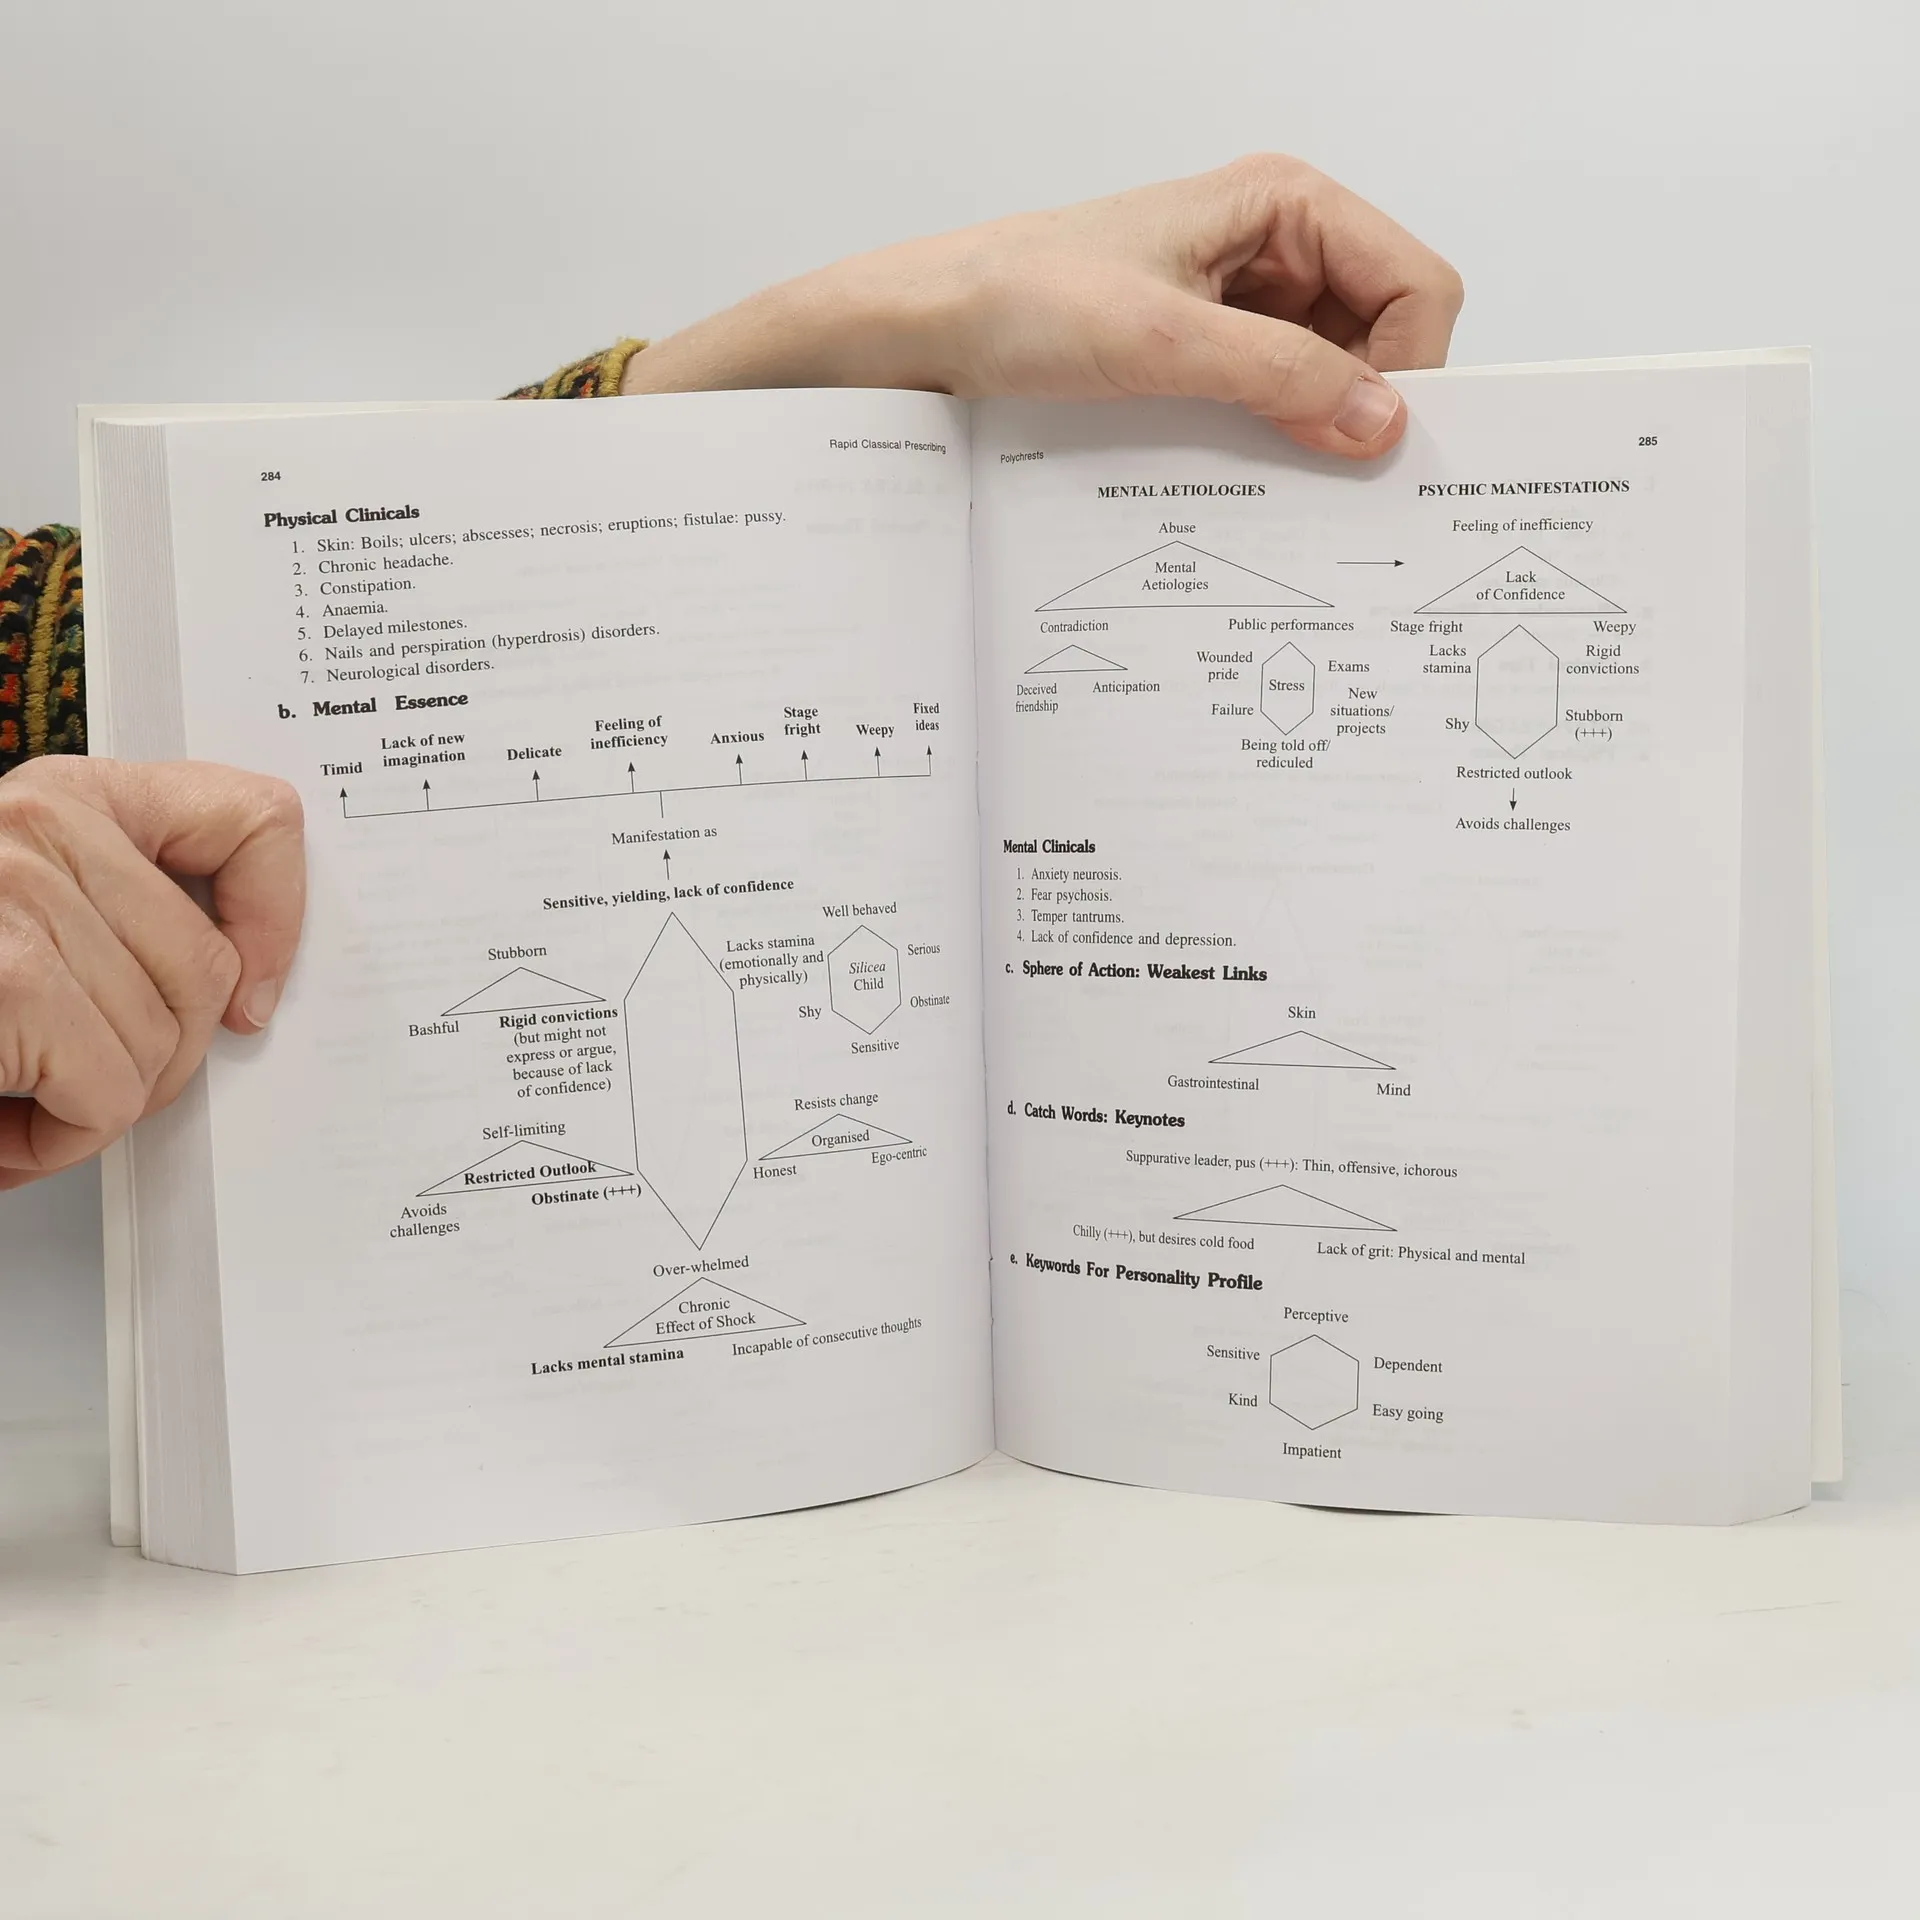 284
Rapid Classical Prescribing
Physical Clinicals
1. Skin: Boils; ulcers; abscesses; necrosis; eruptions; fistulae: pussy.
2. Chronic headache.
3. Constipation.
4. Anaemia.
5. Delayed milestones.
6. Nails and perspiration (hyperdrosis) disorders.
7. Neurological disorders.
b. Mental Essence
Timid
Lack of new
imagination
Delicate
Feeling of
inefficiency
Anxious
Stage
fright
Weepy
Fixed
ideas
Manifestation as
Sensitive, yielding, lack of confidence
Stubborn
Bashful
Rigid convictions
(but might not
express or argue,
because of lack
of confidence)
Lacks stamina
(emotionally and
physically)
Well behaved
Serious
Silicea
Child
Shy
Obstinate
Sensitive
Self-limiting
Restricted Outlook
Obstinate (+++)
Avoids
challenges
Resists change
Organised
Honest
Ego-centric
Over-whelmed
Chronic
Effect of Shock
Lacks mental stamina
Incapable of consecutive thoughts
Polychrests
285
MENTAL AETIOLOGIES
Abuse
Mental
Aetiologies
Contradiction
Public performances
Deceived
friendship
Anticipation
Wounded
pride
Exams
Stress
Failure
New
situations/
projects
Being told off/
rediculed
PSYCHIC MANIFESTATIONS
Feeling of inefficiency
Lack
of Confidence
Stage fright
Weepy
Lacks
stamina
Rigid
convictions
Shy
Stubborn
(+++)
Restricted outlook
Avoids challenges
Mental Clinicals
1. Anxiety neurosis.
2. Fear psychosis.
3. Temper tantrums.
4. Lack of confidence and depression.
c. Sphere of Action: Weakest Links
Skin
Gastrointestinal
Mind
d. Catch Words: Keynotes
Suppurative leader, pus (+++): Thin, offensive, ichorous
Chilly (+++), but desires cold food
Lack of grit: Physical and mental
e. Keywords For Personality Profile
Perceptive
Sensitive
Dependent
Kind
Easy going
Impatient